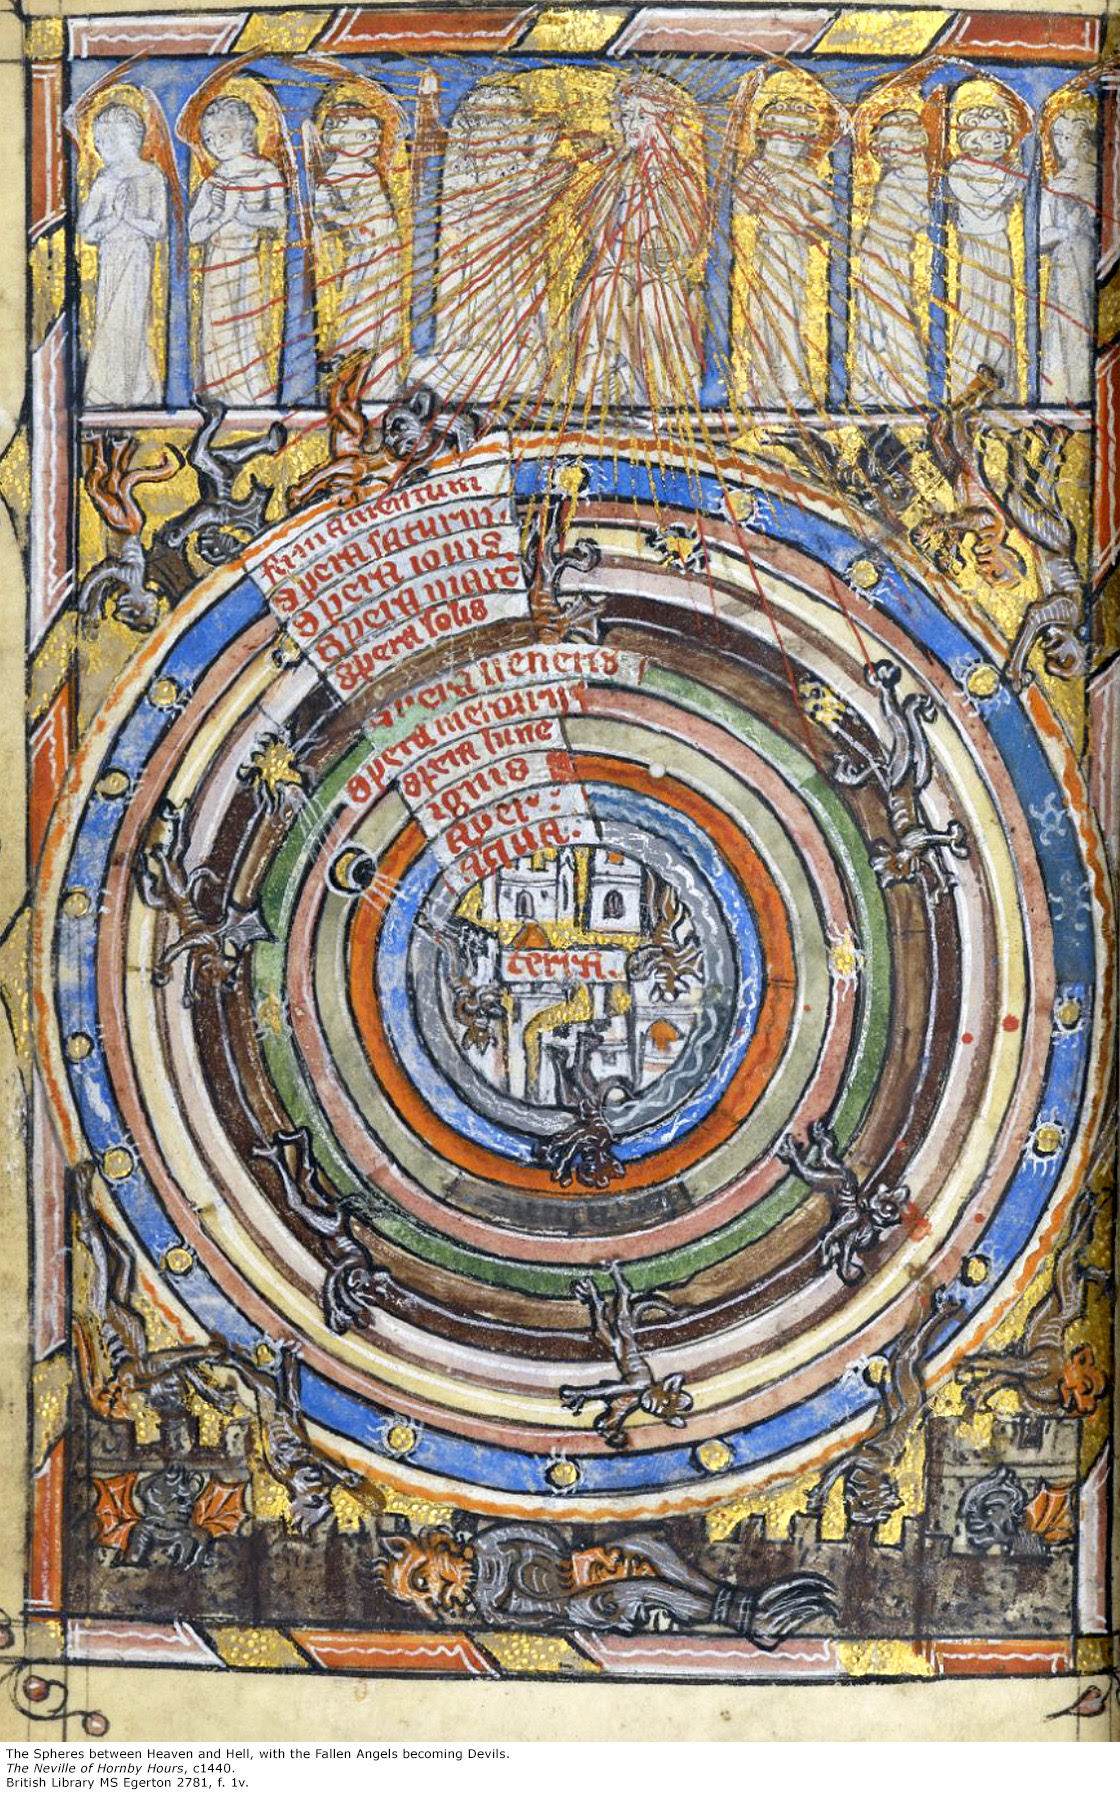 firmamentum
spera saturni
spera iouis.
spera mart
spera solis
spera ueneris
spera mercurii
spera lune
ignis
ayer:
aqua.
terra.
The Spheres between Heaven and Hell, with the Fallen Angels becoming Devils.
The Neville of Hornby Hours, c1440.
British Library MS Egerton 2781, f. 1v.